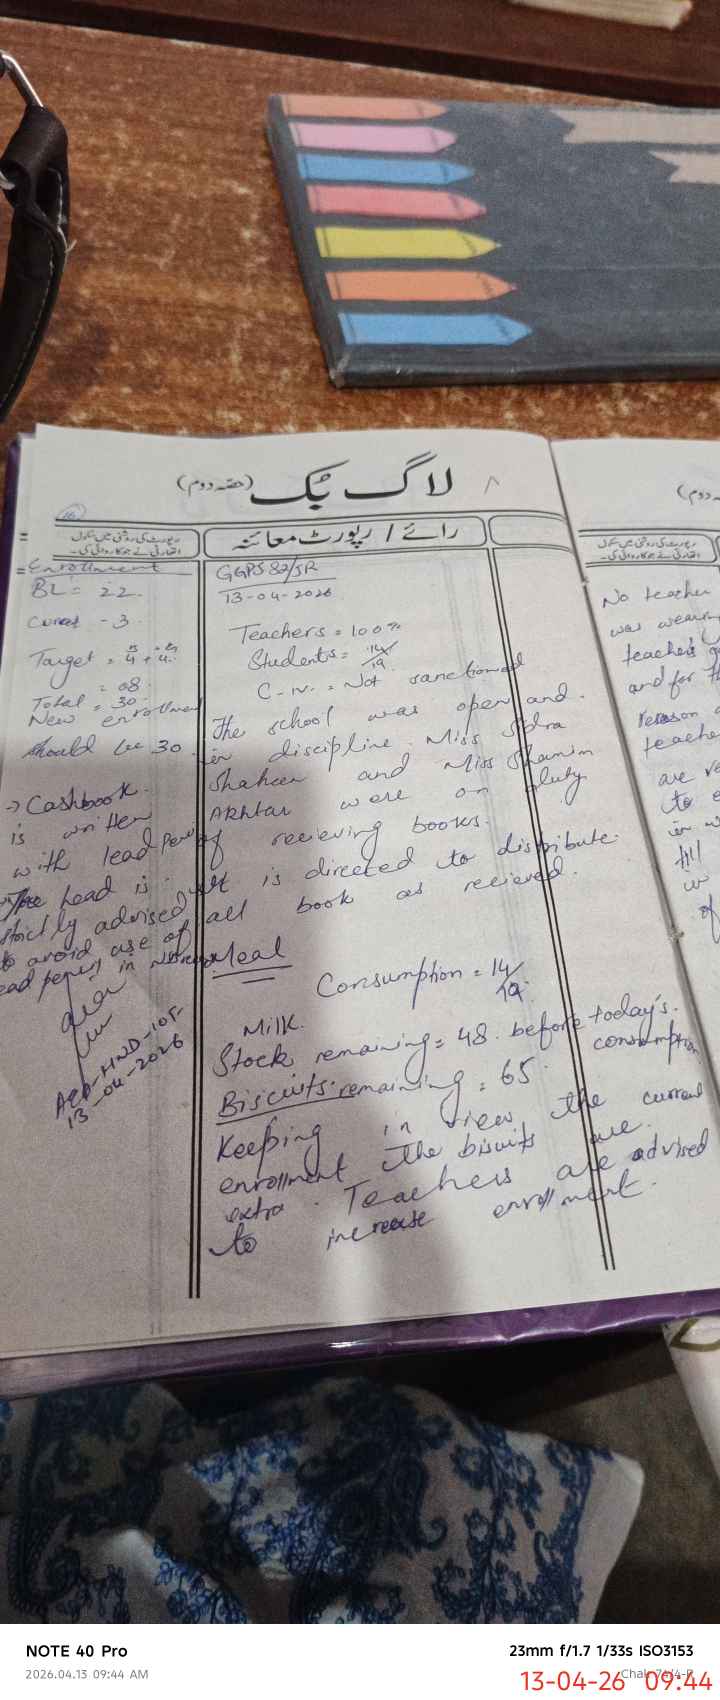 لاگ بک (حصہ دوم)
رائے / رپورٹ معائنہ
Enrollment
BL = 22
Current - 3
Target = 4 + 4
= 08
Total = 30
New enrollment
should be 30
→ Cashbook
is written
with lead pencil
The head is
strictly advised
to avoid use of
lead pencil in
AEO-HND-105
13-04-2026
GGPS 82/5R
13-04-2026
Teachers = 100%
Students = 14/19
C-IV = Not sanctioned
The school was open and
in discipline. Miss Sidra
Shaheen and Miss Shamim
Akhtar were on duty
of recieving books.
It is directed to distribute
all book as recieved.
Meal
Consumption = 14/19
Milk.
Stock remaining = 48 before today's
consumption
Biscuits remaining = 65
Keeping in view the current
enrollment the biscuits are
extra. Teachers are advised
to increase enrollment.
No teacher
was wearing
teachers
and for
reason
teache
are
to
in
till
of
NOTE 40 Pro
23mm f/1.7 1/33s ISO3153
2026.04.13 09:44 AM
13-04-26 09:44